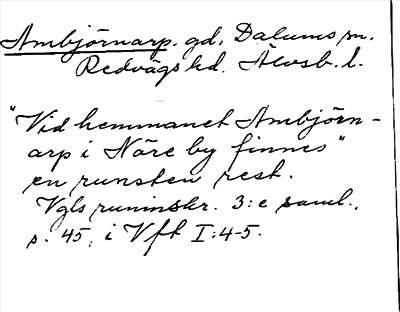 Ambjörnarp. gd, Dalums sn.
Redvägs hd. Älvsb. l.
"Vid hemmanet Ambjörn-
arp i Näre by finnes"
en runsten rest.
Vgls runinskr. 3:e saml.,
s. 45, i Vft I:4-5.